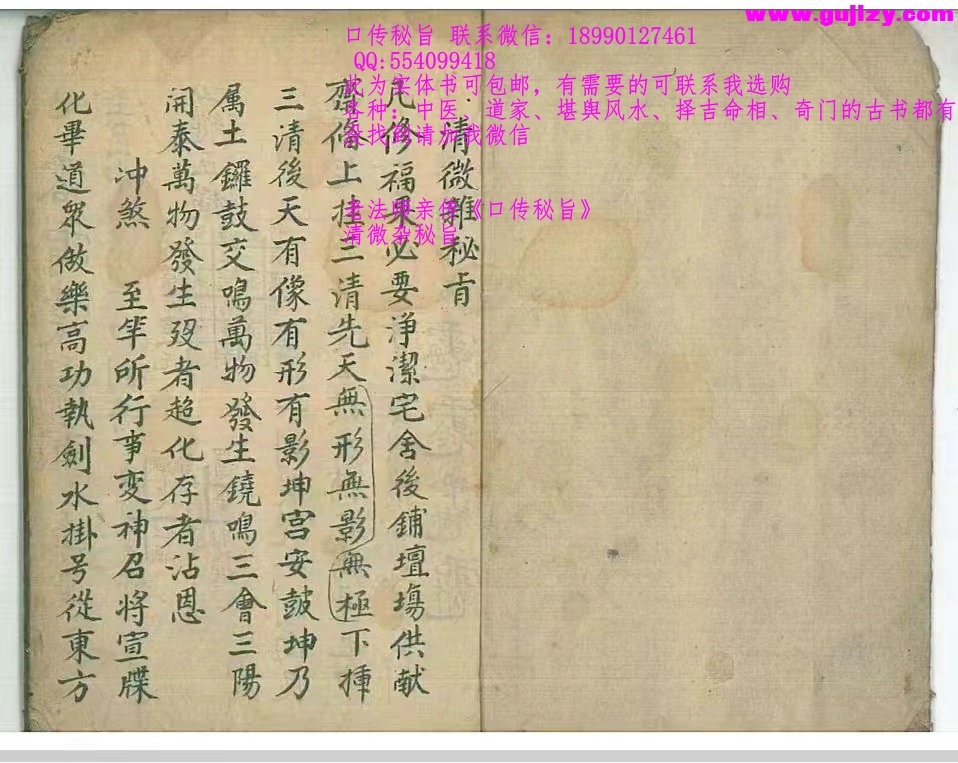 www.gujizy.com
口传秘旨 联系微信：18990127461
QQ:554099418
此为实体书可包邮，有需要的可联系我选购
各种：中医、道家、堪舆风水、择吉命相、奇门的古书都有
没找到请加我微信
老法师亲传《口传秘旨》
清微杂秘旨
清微雜秘旨
凡修福果必要淨潔宅舍後鋪壇塲供献
齋條上挂三清先天無形無影無極下挿
三清後天有像有形有影坤宫安鼓坤乃
属土鑼鼓交鳴萬物發生鐃鳴三會三陽
開泰萬物發生殁者超化存者沾恩
冲煞 至竿所行事变神召将宣牒
化畢道眾做樂高功執劍水掛号從東方